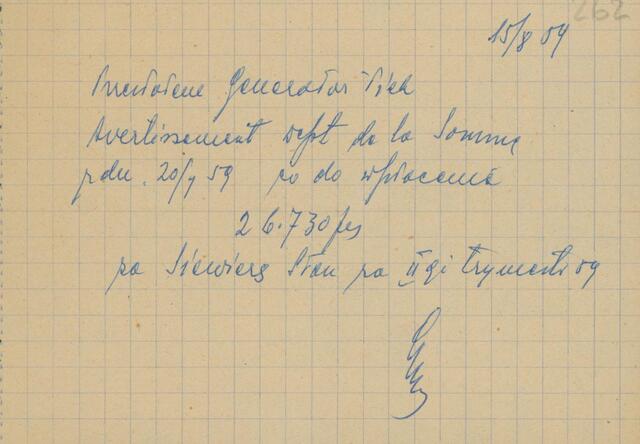 262
15/8 59
Generator
Avertissement dept de la Somme
z dn. 20/7 59 do wpłacenia
26.730 frs
za Siewierg Stan za II gi trymestr 59